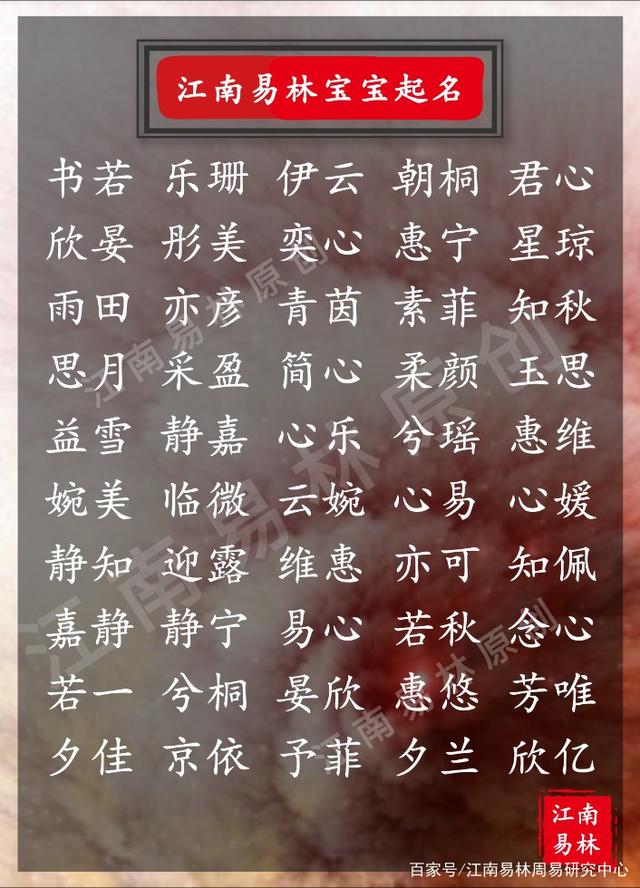 江南易林宝宝起名
书若 乐珊 伊云 朝桐 君心
欣晏 彤美 奕心 惠宁 星琼
雨田 亦彦 青茵 素菲 知秋
思月 采盈 简心 柔颜 玉思
益雪 静嘉 心乐 兮瑶 惠维
婉美 临微 云婉 心易 心媛
静知 迎露 维惠 亦可 知佩
嘉静 静宁 易心 若秋 念心
若一 兮桐 晏欣 惠悠 芳唯
夕佳 京依 予菲 夕兰 欣亿
江南易林原创
江南易林原创
江南易林原创
江南
易林
百家号/江南易林周易研究中心